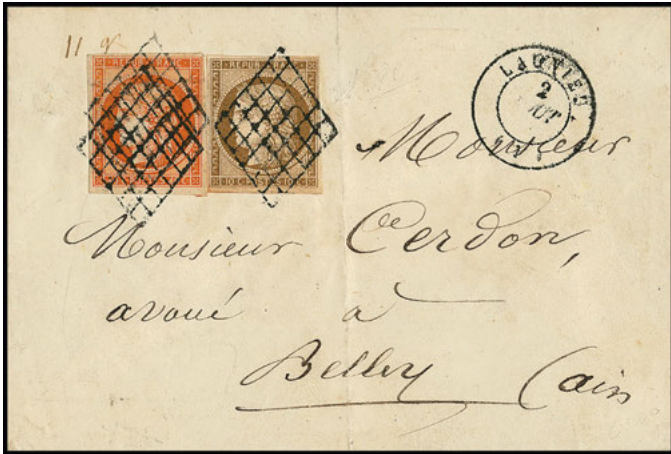 11 g
REPUB FRANC
REPUB FRANC
10 C POSTES 10 C
LAGNIEU
2
AOUT
Monsieur
Monsieur Cerdon,
avoué à
Belley (Ain